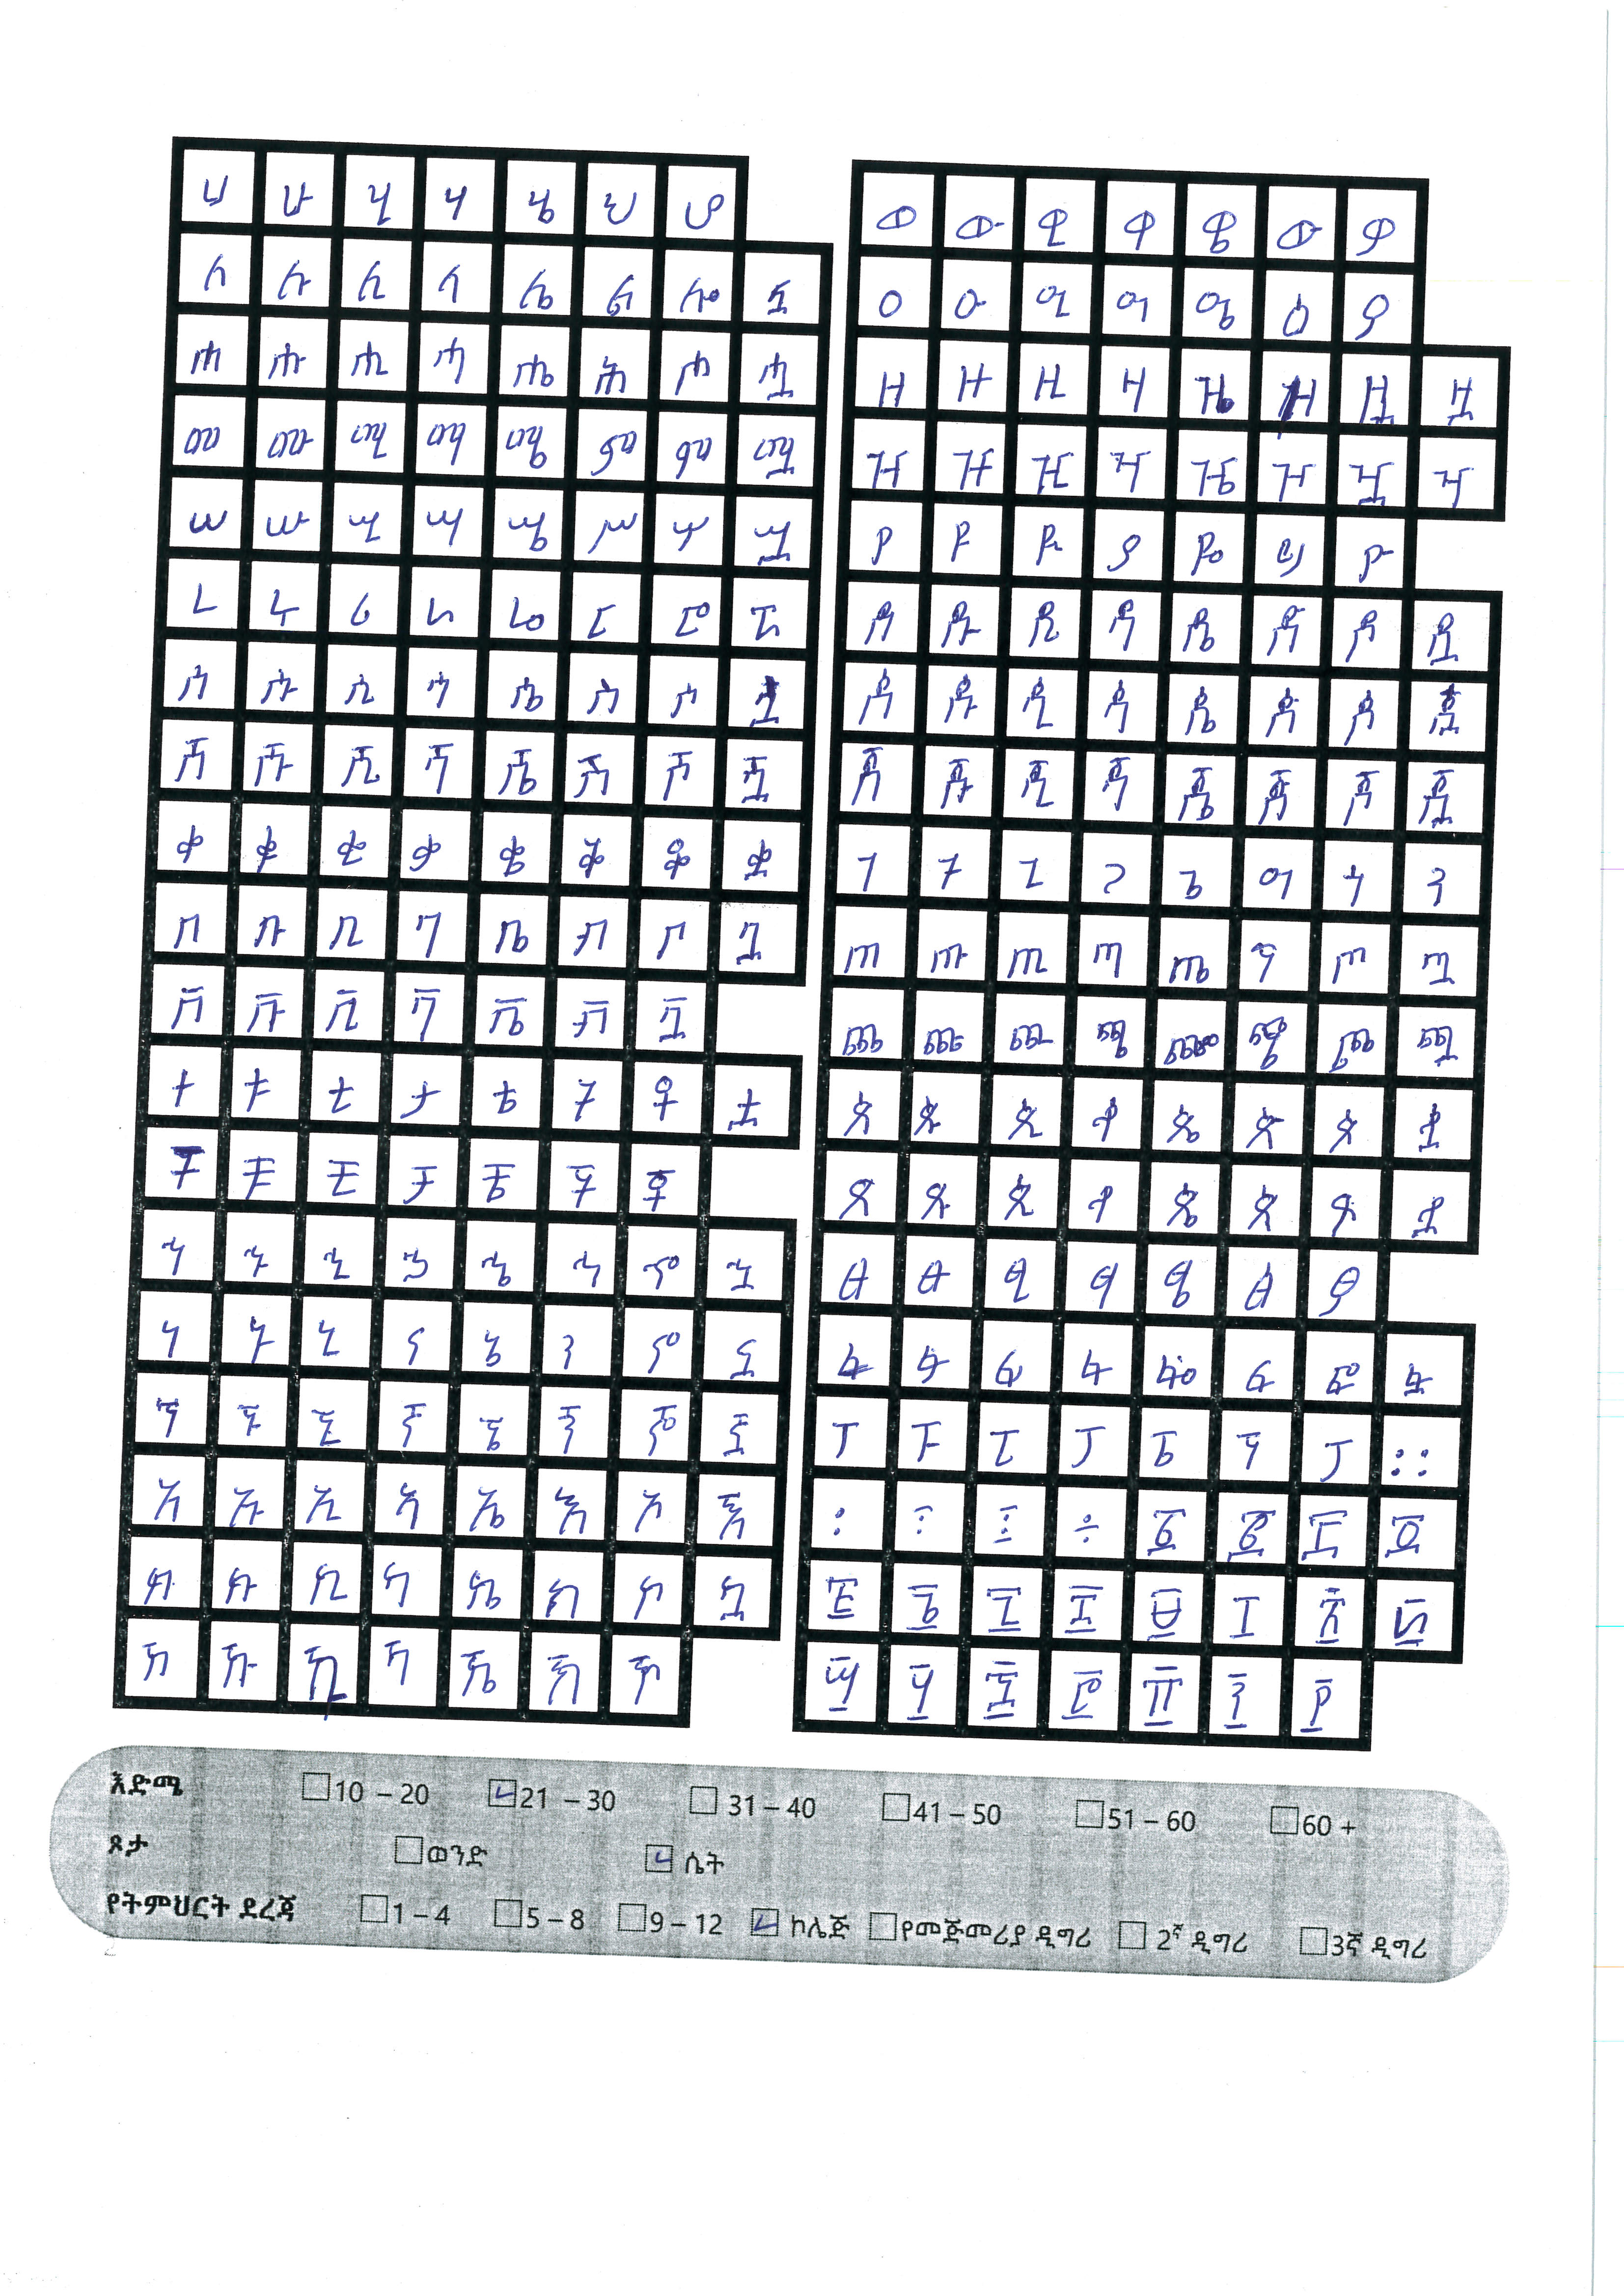 ሀ ሁ ሂ ሃ ሄ ህ ሆ
ለ ሉ ሊ ላ ሌ ል ሎ ሏ
ሐ ሑ ሒ ሓ ሔ ሕ ሖ ሗ
መ ሙ ሚ ማ ሜ ም ሞ ሟ
ሠ ሡ ሢ ሣ ሤ ሥ ሦ ሧ
ረ ሩ ሪ ራ ሬ ር ሮ ሯ
ሰ ሱ ሲ ሳ ሴ ስ ሶ ሷ
ሸ ሹ ሺ ሻ ሼ ሽ ሾ ሿ
ቀ ቁ ቂ ቃ ቄ ቅ ቆ ቋ
በ ቡ ቢ ባ ቤ ብ ቦ ቧ
ቨ ቩ ቪ ቫ ቬ ቭ ቯ
ተ ቱ ቲ ታ ቴ ት ቶ ቷ
ቸ ቹ ቺ ቻ ቼ ች ቾ
ኀ ኁ ኂ ኃ ኄ ኅ ኆ ኋ
ነ ኑ ኒ ና ኔ ን ኖ ኗ
ኘ ኙ ኚ ኛ ኜ ኝ ኞ ኟ
አ ኡ ኢ ኣ ኤ እ ኦ ኧ
ከ ኩ ኪ ካ ኬ ክ ኮ ኳ
ኸ ኹ ኺ ኻ ኼ ኽ ኾ
ወ ዉ ዊ ዋ ዌ ው ዎ
ዐ ዑ ዒ ዓ ዔ ዕ ዖ
ዘ ዙ ዚ ዛ ዜ ዟ
ዠ ዡ ዢ ዣ ዤ ዥ ዧ ዦ
የ ዩ ዪ ያ ዬ ይ ዮ
ደ ዱ ዲ ዳ ዴ ድ ዶ ዷ
ጀ ጁ ጂ ጃ ጄ ጅ ጆ ጇ
ገ ጉ ጊ ጋ ጌ ግ ጎ
ጠ ጡ ጢ ጣ ጤ ጥ ጦ ጧ
ጨ ጩ ጪ ጫ ጬ ጭ ጮ ጯ
ጰ ጱ ጲ ጳ ጴ ጵ ጶ ጷ
ጸ ጹ ጺ ጻ ጼ ጽ ጾ ጿ
ፀ ፁ ፂ ፃ ፄ ፅ ፆ
ፈ ፉ ፊ ፋ ፌ ፍ ፎ ፏ
ፐ ፑ ፒ ፓ ፔ ፕ ፖ ።
፡ ፩ ፪ ፫ ፬
፭ ፮ ፯ ፰ ፱ ፲ ፳ ፴
፵ ፶ ፷ ፸ ፹ ፺ ፻
እድሜ 10 – 20 21 – 30 31 – 40 41 – 50 51 – 60 60 +
ጾታ ወንድ ሴት
የትምህርት ደረጃ 1 – 4 5 – 8 9 – 12 ኮሌጅ የመጀመሪያ ዲግሪ 2ኛ ዲግሪ 3ኛ ዲግሪ